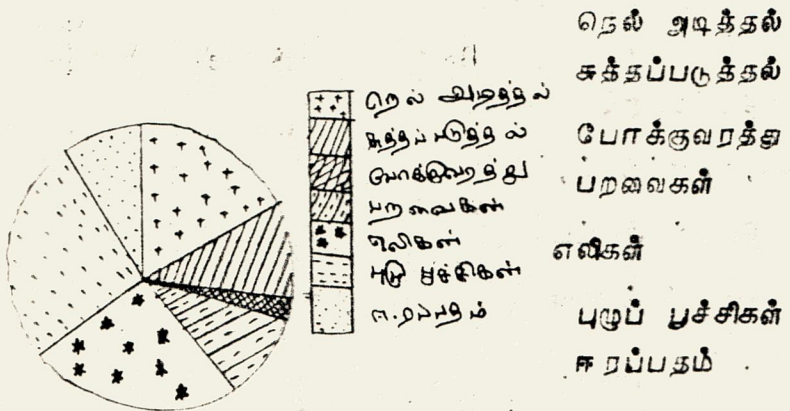 நெல் அடித்தல்
சுத்தப்படுத்தல்
போக்குவரத்து
பறவைகள்
எலிகள்
புழு பூச்சிகள்
ஈரப்பதம்
நெல் அடித்தல்
சுத்தப்படுத்தல்
போக்குவரத்து
பறவைகள்
எலிகள்
புழுப் பூச்சிகள்
ஈரப்பதம்